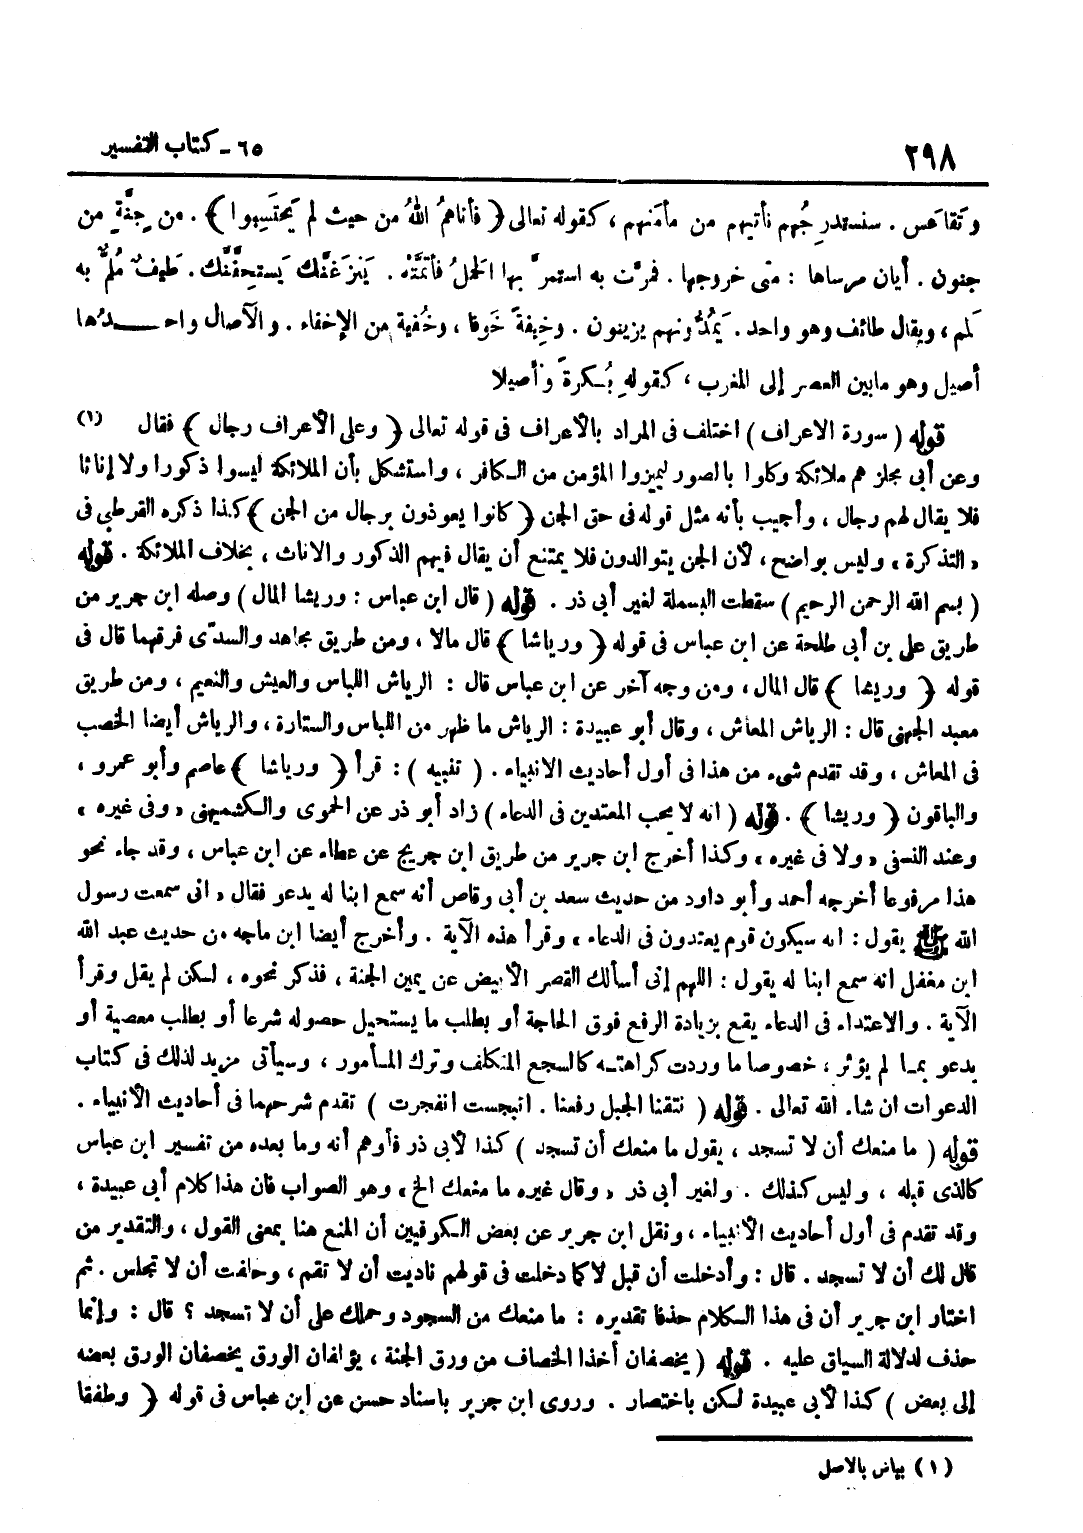 ٢٩٨
٦٥ - كتاب التفسير
وتَقاعَس . سنستدرِجُهم نأتيهم من مأمَنهم ، كقوله تعالى ﴿ فأتاهمُ اللهُ من حيث لم يَحتَسِبوا ﴾ . من جِنَّةٍ من
جنون . أيان مرساها : متى خروجها . فمرَّت به استمرَّ بها الحملُ فأتمَّتْه . يَنزَغنَّك يَستخِفَّنَّك . طَيفٌ مُلِمٌّ به
لَمم ، ويقال طائف وهو واحد . يَمُدُّونهم يزينون . وخِيفةً خَوفا ، وخُفية من الإخفاء . والآصال واحـــدُها
أصيل وهو مابين العصر إلى المغرب ، كقولهِ بُكرةً وأصيلا
قوله ( سورة الاعراف ) اختلف فى المراد بالأعراف فى قوله تعالى ﴿ وعلى الأعراف رجال ﴾ فقال (١)
وعن أبى مجلز هم ملائكة وكلوا بالصور ليميزوا المؤمن من الكافر ، واستشكل بأن الملائكة ليسوا ذكورا ولا إناثا
فلا يقال لهم رجال ، وأجيب بأنه مثل قوله فى حق الجن ﴿ كانوا يعوذون برجال من الجن ﴾ كذا ذكره القرطبى فى
« التذكرة » وليس بواضح ، لأن الجن يتوالدون فلا يمتنع أن يقال فيهم الذكور والاناث ، بخلاف الملائكة . قوله
( بسم الله الرحمن الرحيم ) سقطت البسملة لغير أبى ذر . قوله ( قال ابن عباس : وريشا المال ) وصله ابن جرير من
طريق على بن أبى طلحة عن ابن عباس فى قوله ﴿ ورياشا ﴾ قال مالا ، ومن طريق مجاهد والسدّى فرقهما قال فى
قوله ﴿ وريشا ﴾ قال المال ، ومن وجه آخر عن ابن عباس قال : الرياش اللباس والعيش والنعيم ، ومن طريق
معبد الجهنى قال : الرياش المعاش ، وقال أبو عبيدة : الرياش ما ظهر من اللباس والستارة ، والرياش أيضا الخصب
فى المعاش ، وقد تقدم شىء من هذا فى أول أحاديث الانبياء . ( تنبيه ) : قرأ ﴿ ورياشا ﴾ عاصم وأبو عمرو ،
والباقون ﴿ وريشا ﴾ . قوله ( انه لا يحب المعتدين فى الدعاء ) زاد أبو ذر عن الحموى والكشميهنى « وفى غيره »
وعند النسفى « ولا فى غيره » وكذا أخرج ابن جرير من طريق ابن جريج عن عطاء عن ابن عباس ، وقد جاء نحو
هذا مرفوعا أخرجه أحمد وأبو داود من حديث سعد بن أبى وقاص أنه سمع ابنا له يدعو فقال « انى سمعت رسول
الله ﷺ يقول : انه سيكون قوم يعتدون فى الدعاء » وقرأ هذه الآية . وأخرج أيضا ابن ماجه من حديث عبد الله
ابن مغفل انه سمع ابنا له يقول : اللهم إنى أسألك القصر الأبيض عن يمين الجنة ، فذكر نحوه ، لكن لم يقل وقرأ
الآية . والاعتداء فى الدعاء يقع بزيادة الرفع فوق الحاجة أو بطلب ما يستحيل حصوله شرعا أو بطلب معصية أو
يدعو بمـا لم يؤثر ، خصوصا ما وردت كراهتـه كالسجع المتكلف وترك المـأمور ، وسيأتى مزيد لذلك فى كتاب
الدعوات ان شاء الله تعالى . قوله ( نتقنا الجبل رفعنا . انبجست انفجرت ) تقدم شرحهما فى أحاديث الأنبياء .
قوله ( ما منعك أن لا تسجد ، يقول ما منعك أن تسجد ) كذا لأبى ذر فأوهم أنه وما بعده من تفسير ابن عباس
كالذى قبله ، وليس كذلك . ولغير أبى ذر « وقال غيره ما منعك الخ » وهو الصواب فان هذا كلام أبى عبيدة ،
وقد تقدم فى أول أحاديث الأنبياء ، ونقل ابن جرير عن بعض الكوفيين أن المنع هنا بمعنى القول ، والتقدير من
قال لك أن لا تسجد . قال : وأدخلت أن قبل لا كما دخلت فى قولهم ناديت أن لا تقم ، وحلفت أن لا تجلس . ثم
اختار ابن جرير أن فى هذا الكلام حذفا تقديره : ما منعك من السجود وحملك على أن لا تسجد ؟ قال : وإنما
حذف لدلالة السياق عليه . قوله ( يخصفان أخذا الخصاف من ورق الجنة ، يؤلفان الورق يخصفان الورق بعضه
إلى بعض ) كذا لأبى عبيدة لكن باختصار . وروى ابن جرير باسناد حسن عن ابن عباس فى قوله ﴿ وطفقا
( ١ ) بياض بالاصل